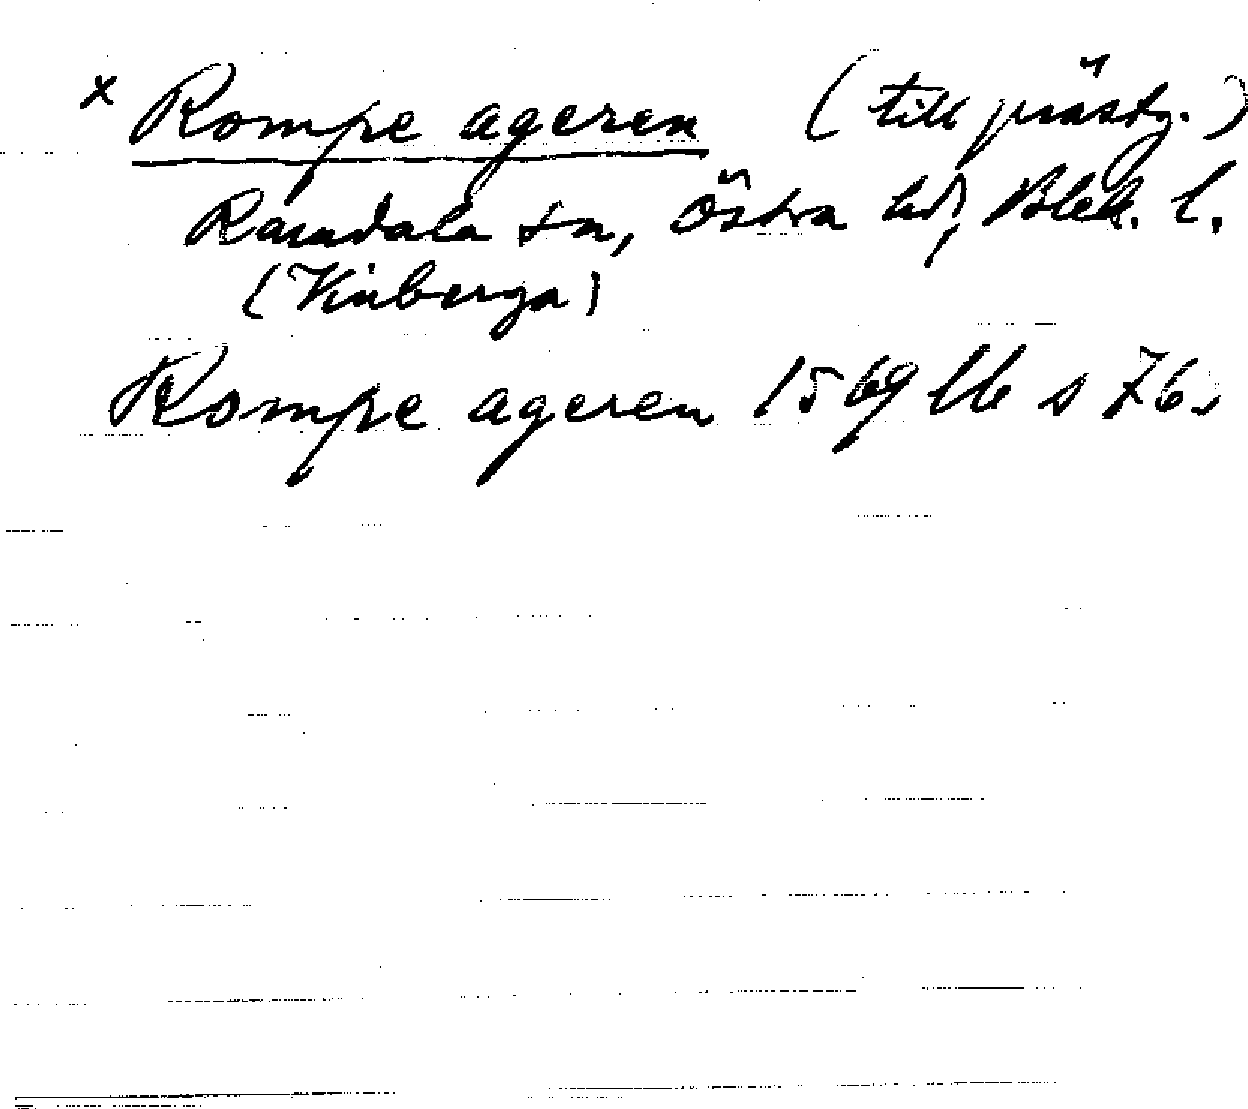 x Rompe ageren (till prästg.)
Ramdala sn, Östra hd, Blek. l.
(Vinberga)
Rompe ageren 1569 llb s 76.